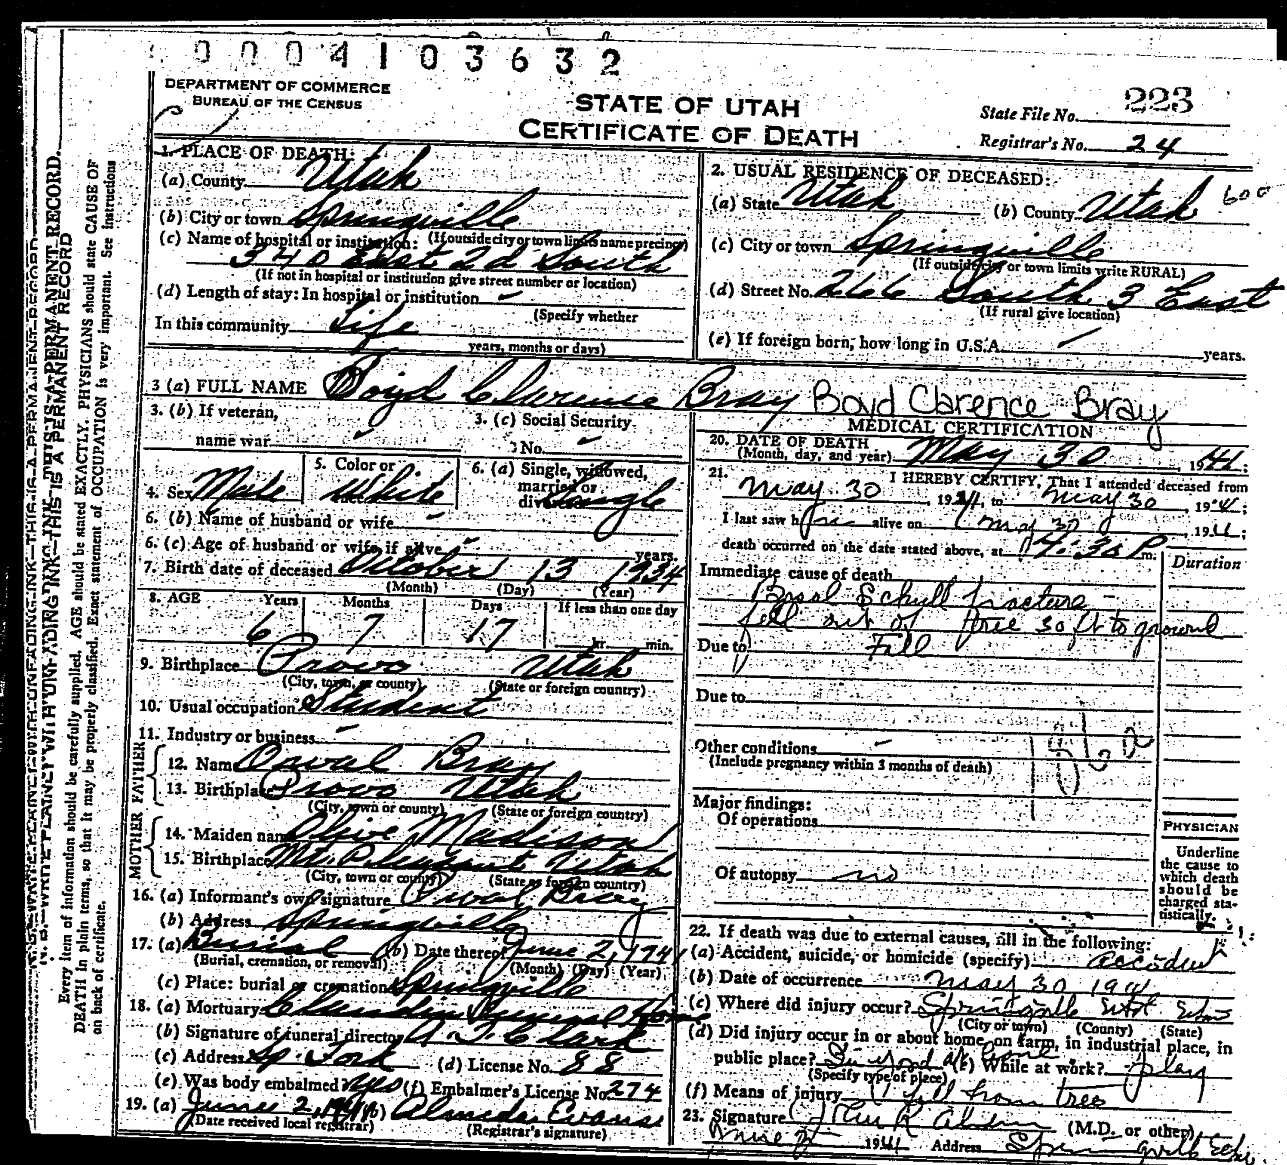 0004103632
DEPARTMENT OF COMMERCE
BUREAU OF THE CENSUS
STATE OF UTAH
CERTIFICATE OF DEATH
State File No. 223
Registrar's No. 24
N. B.—WRITE PLAINLY WITH UNFADING INK—THIS IS A PERMANENT RECORD
Every item of information should be carefully supplied. AGE should be stated EXACTLY. PHYSICIANS should state CAUSE OF
DEATH in plain terms, so that it may be properly classified. Exact statement of OCCUPATION is very important. See instructions
on back of certificate.
1. PLACE OF DEATH:
(a) County Utah
(b) City or town Springville
(If outside city or town limits name precinct)
(c) Name of hospital or institution:
340 East 2d South
(If not in hospital or institution give street number or location)
(d) Length of stay: In hospital or institution -
(Specify whether
In this community Life
years, months or days)
2. USUAL RESIDENCE OF DECEASED:
(a) State Utah (b) County Utah 600
(c) City or town Springville
(If outside city or town limits write RURAL)
(d) Street No. 266 South 3 East
(If rural give location)
(e) If foreign born, how long in U.S.A. years.
3 (a) FULL NAME Boyd Clarence Bray Boyd Clarence Bray
3. (b) If veteran,
name war
3. (c) Social Security
No.
4. Sex Male
5. Color or
race White
6. (a) Single, widowed,
married or
divorced Single
6. (b) Name of husband or wife -
6. (c) Age of husband or wife, if alive - years.
7. Birth date of deceased October 13 1934
(Month) (Day) (Year)
8. AGE Years Months Days If less than one day
6 7 17 hr. min.
9. Birthplace Provo Utah
(City, town, or county) (State or foreign country)
10. Usual occupation Student
11. Industry or business -
FATHER
12. Name Orval Bray
13. Birthplace Provo Utah
(City, town or county) (State or foreign country)
MOTHER
14. Maiden name Olive Madison
15. Birthplace Mt. Pleasant Utah
(City, town or county) (State or foreign country)
16. (a) Informant's own signature Orval Bray
(b) Address Springville
17. (a) Burial (b) Date thereof June 2, 1941
(Burial, cremation, or removal) (Month) (Day) (Year)
(c) Place: burial or cremation Springville
18. (a) Mortuary Funeral Home
(b) Signature of funeral director A. Clark
(c) Address Sp. Fork (d) License No. 88
(e) Was body embalmed? yes (f) Embalmer's License No. 274
19. (a) June 2, 1941 (b) Almeda Evans
(Date received local registrar) (Registrar's signature)
MEDICAL CERTIFICATION
20. DATE OF DEATH
(Month, day, and year) May 30, 1941;
21. I HEREBY CERTIFY, That I attended deceased from
May 30, 1941, to May 30, 1941;
I last saw him alive on May 30, 1941;
death occurred on the date stated above, at 7:30 P.m.
Duration
Immediate cause of death
Basal Skull fracture -
fell out of tree 30 ft to ground
Due to Fall
Due to
Other conditions -
(Include pregnancy within 3 months of death)
Major findings:
Of operations
Of autopsy no
PHYSICIAN
Underline
the cause to
which death
should be
charged sta-
tistically.
22. If death was due to external causes, fill in the following:
(a) Accident, suicide, or homicide (specify) accident
(b) Date of occurrence May 30 1941
(c) Where did injury occur? Springville Utah Utah
(City or town) (County) (State)
(d) Did injury occur in or about home, on farm, in industrial place, in
public place? In yard at home (e) While at work? play
(Specify type of place)
(f) Means of injury fell from tree
23. Signature (M.D. or other)
June 2 1941 Address Springville Utah